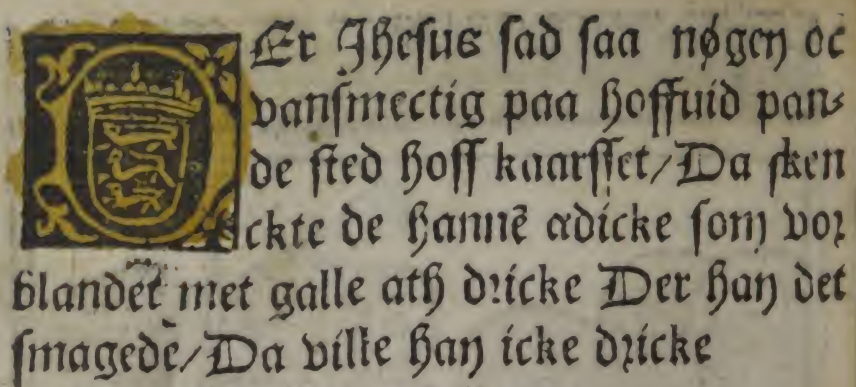 DEr Jhesus sad saa nøgen oc
vansmectig paa hoffuid pan⸗
de sted hoff kaarsset/Da sken
ckte de hannē ædicke som vor
blandet met galle ath dricke Der han det
smagede/Da ville han icke dricke